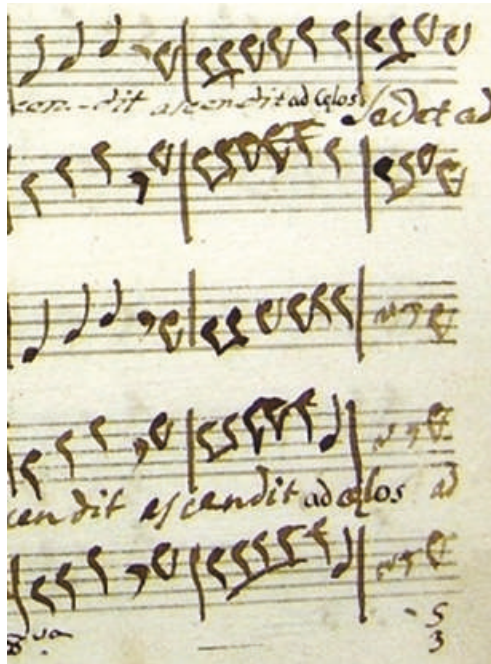 cen-dit ascendit ad Cęlos Sedet ad
cendit ascendit ad cęlos ad
8va
5
3